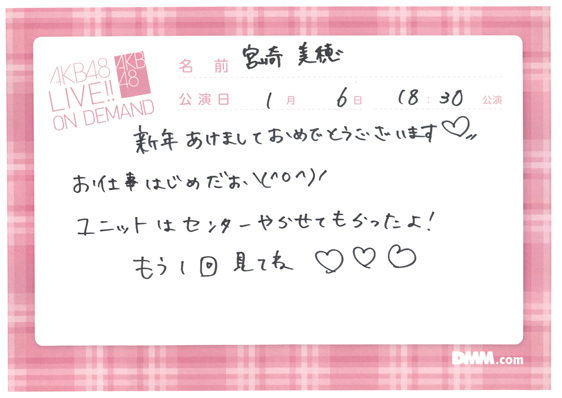 AKB48
LIVE!!
ON DEMAND
AKB
48
名前 宮崎 美穂
公演日 1月 6日 18:30 公演
新年あけましておめでとうございます♡
お仕事はじめだお、\(^o^)/
ユニットはセンターやらせてもらったよ!
もう1回見てね ♡♡♡
DMM.com